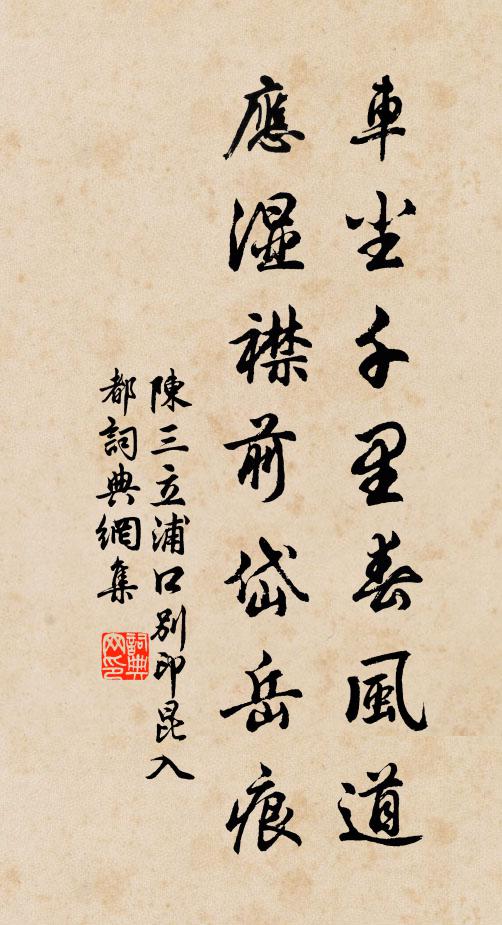 車尘千里春風道
應湿襟前岱岳痕
陳三立浦口別印昆入
都詞典網集
詞典网印